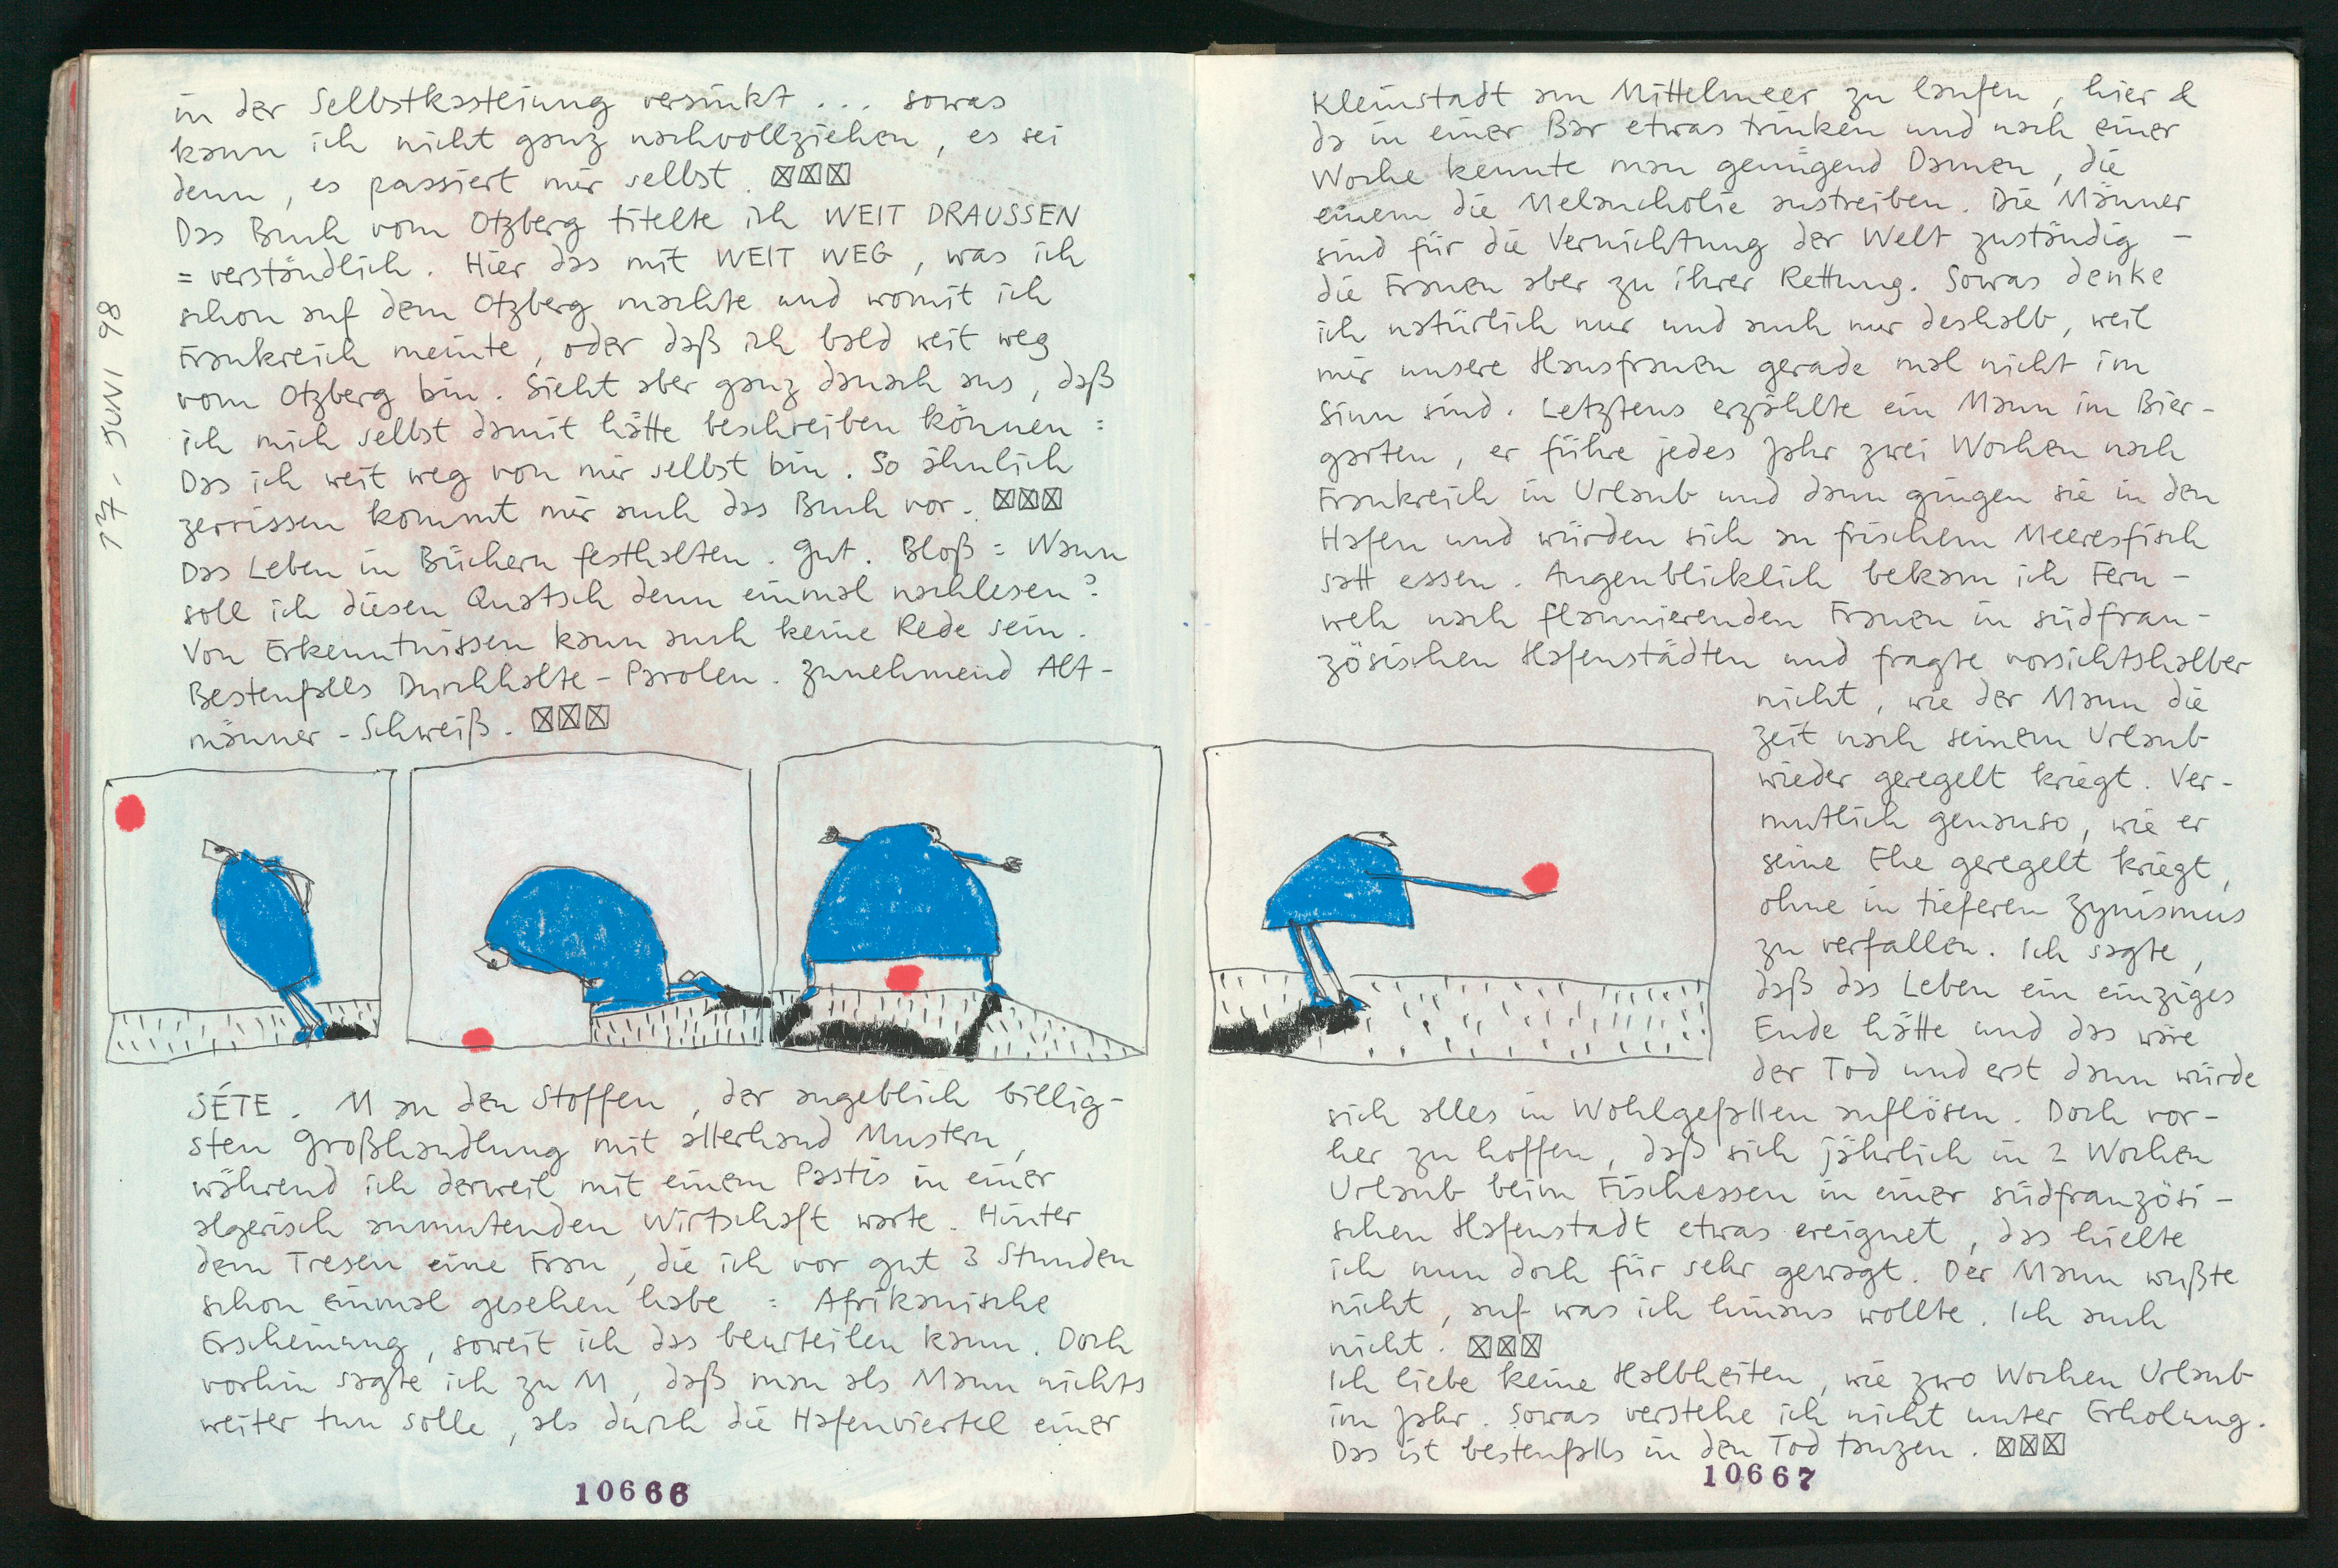 17. JUNI 98
in der Selbstkasteiung versinkt ... sowas
kann ich nicht ganz nachvollziehen, es sei
denn, es passiert mir selbst. ☒☒☒
Das Buch vom Otzberg titelte ich WEIT DRAUSSEN
= verständlich. Hier das mit WEIT WEG, was ich
schon auf dem Otzberg machte und womit ich
Frankreich meinte, oder daß ich bald weit weg
vom Otzberg bin. Sieht aber ganz danach aus, daß
ich mich selbst damit hätte beschreiben können =
Das ich weit weg von mir selbst bin. So ähnlich
zerrissen kommt mir auch das Buch vor. ☒☒☒
Das Leben in Büchern festhalten. Gut. Bloß = Wann
soll ich diesen Quatsch denn einmal nachlesen?
Von Erkenntnissen kann auch keine Rede sein.
Bestenfalls Durchhalte-Parolen. Zunehmend Alt-
männer-Schweiß. ☒☒☒
SÉTE. M an den Stoffen, der angeblich billig-
sten Großhandlung mit allerhand Mustern,
während ich derweil mit einem Pastis in einer
algerisch anmutenden Wirtschaft warte. Hinter
dem Tresen eine Frau, die ich vor gut 3 Stunden
schon einmal gesehen habe = Afrikanische
Erscheinung, soweit ich das beurteilen kann. Doch
vorhin sagte ich zu M, daß man als Mann nichts
weiter tun solle, als durch die Hafenviertel einer
10666
Kleinstadt am Mittelmeer zu laufen, hier &
da in einer Bar etwas trinken und nach einer
Woche kennte man genügend Damen, die
einem die Melancholie austreiben. Die Männer
sind für die Vernichtung der Welt zuständig –
die Frauen aber zu ihrer Rettung. Sowas denke
ich natürlich nur und auch nur deshalb, weil
mir unsere Hausfrauen gerade mal nicht im
Sinn sind. Letztens erzählte ein Mann im Bier-
garten, er führe jedes Jahr zwei Wochen nach
Frankreich in Urlaub und dann gingen sie in den
Hafen und würden sich an frischem Meeresfisch
satt essen. Augenblicklich bekam ich Fern-
weh nach flannierenden Frauen in südfran-
zösischen Hafenstädten und fragte vorsichtshalber
nicht, wie der Mann die
Zeit nach seinem Urlaub
wieder geregelt kriegt. Ver-
mutlich genauso, wie er
seine Ehe geregelt kriegt,
ohne in tieferen Zynismus
zu verfallen. Ich sagte,
daß das Leben ein einziges
Ende hätte und das wäre
der Tod und erst dann würde
sich alles in Wohlgefallen auflösen. Doch vor-
her zu hoffen, daß sich jährlich in 2 Wochen
Urlaub beim Fischessen in einer südfranzösi-
schen Hafenstadt etwas ereignet, das hielte
ich nun doch für sehr gewagt. Der Mann wußte
nicht, auf was ich hinaus wollte. Ich auch
nicht. ☒☒☒
Ich liebe keine Halbheiten, wie zwo Wochen Urlaub
im Jahr. Sowas verstehe ich nicht unter Erholung.
Das ist bestenfalls in den Tod tanzen. ☒☒☒
10667